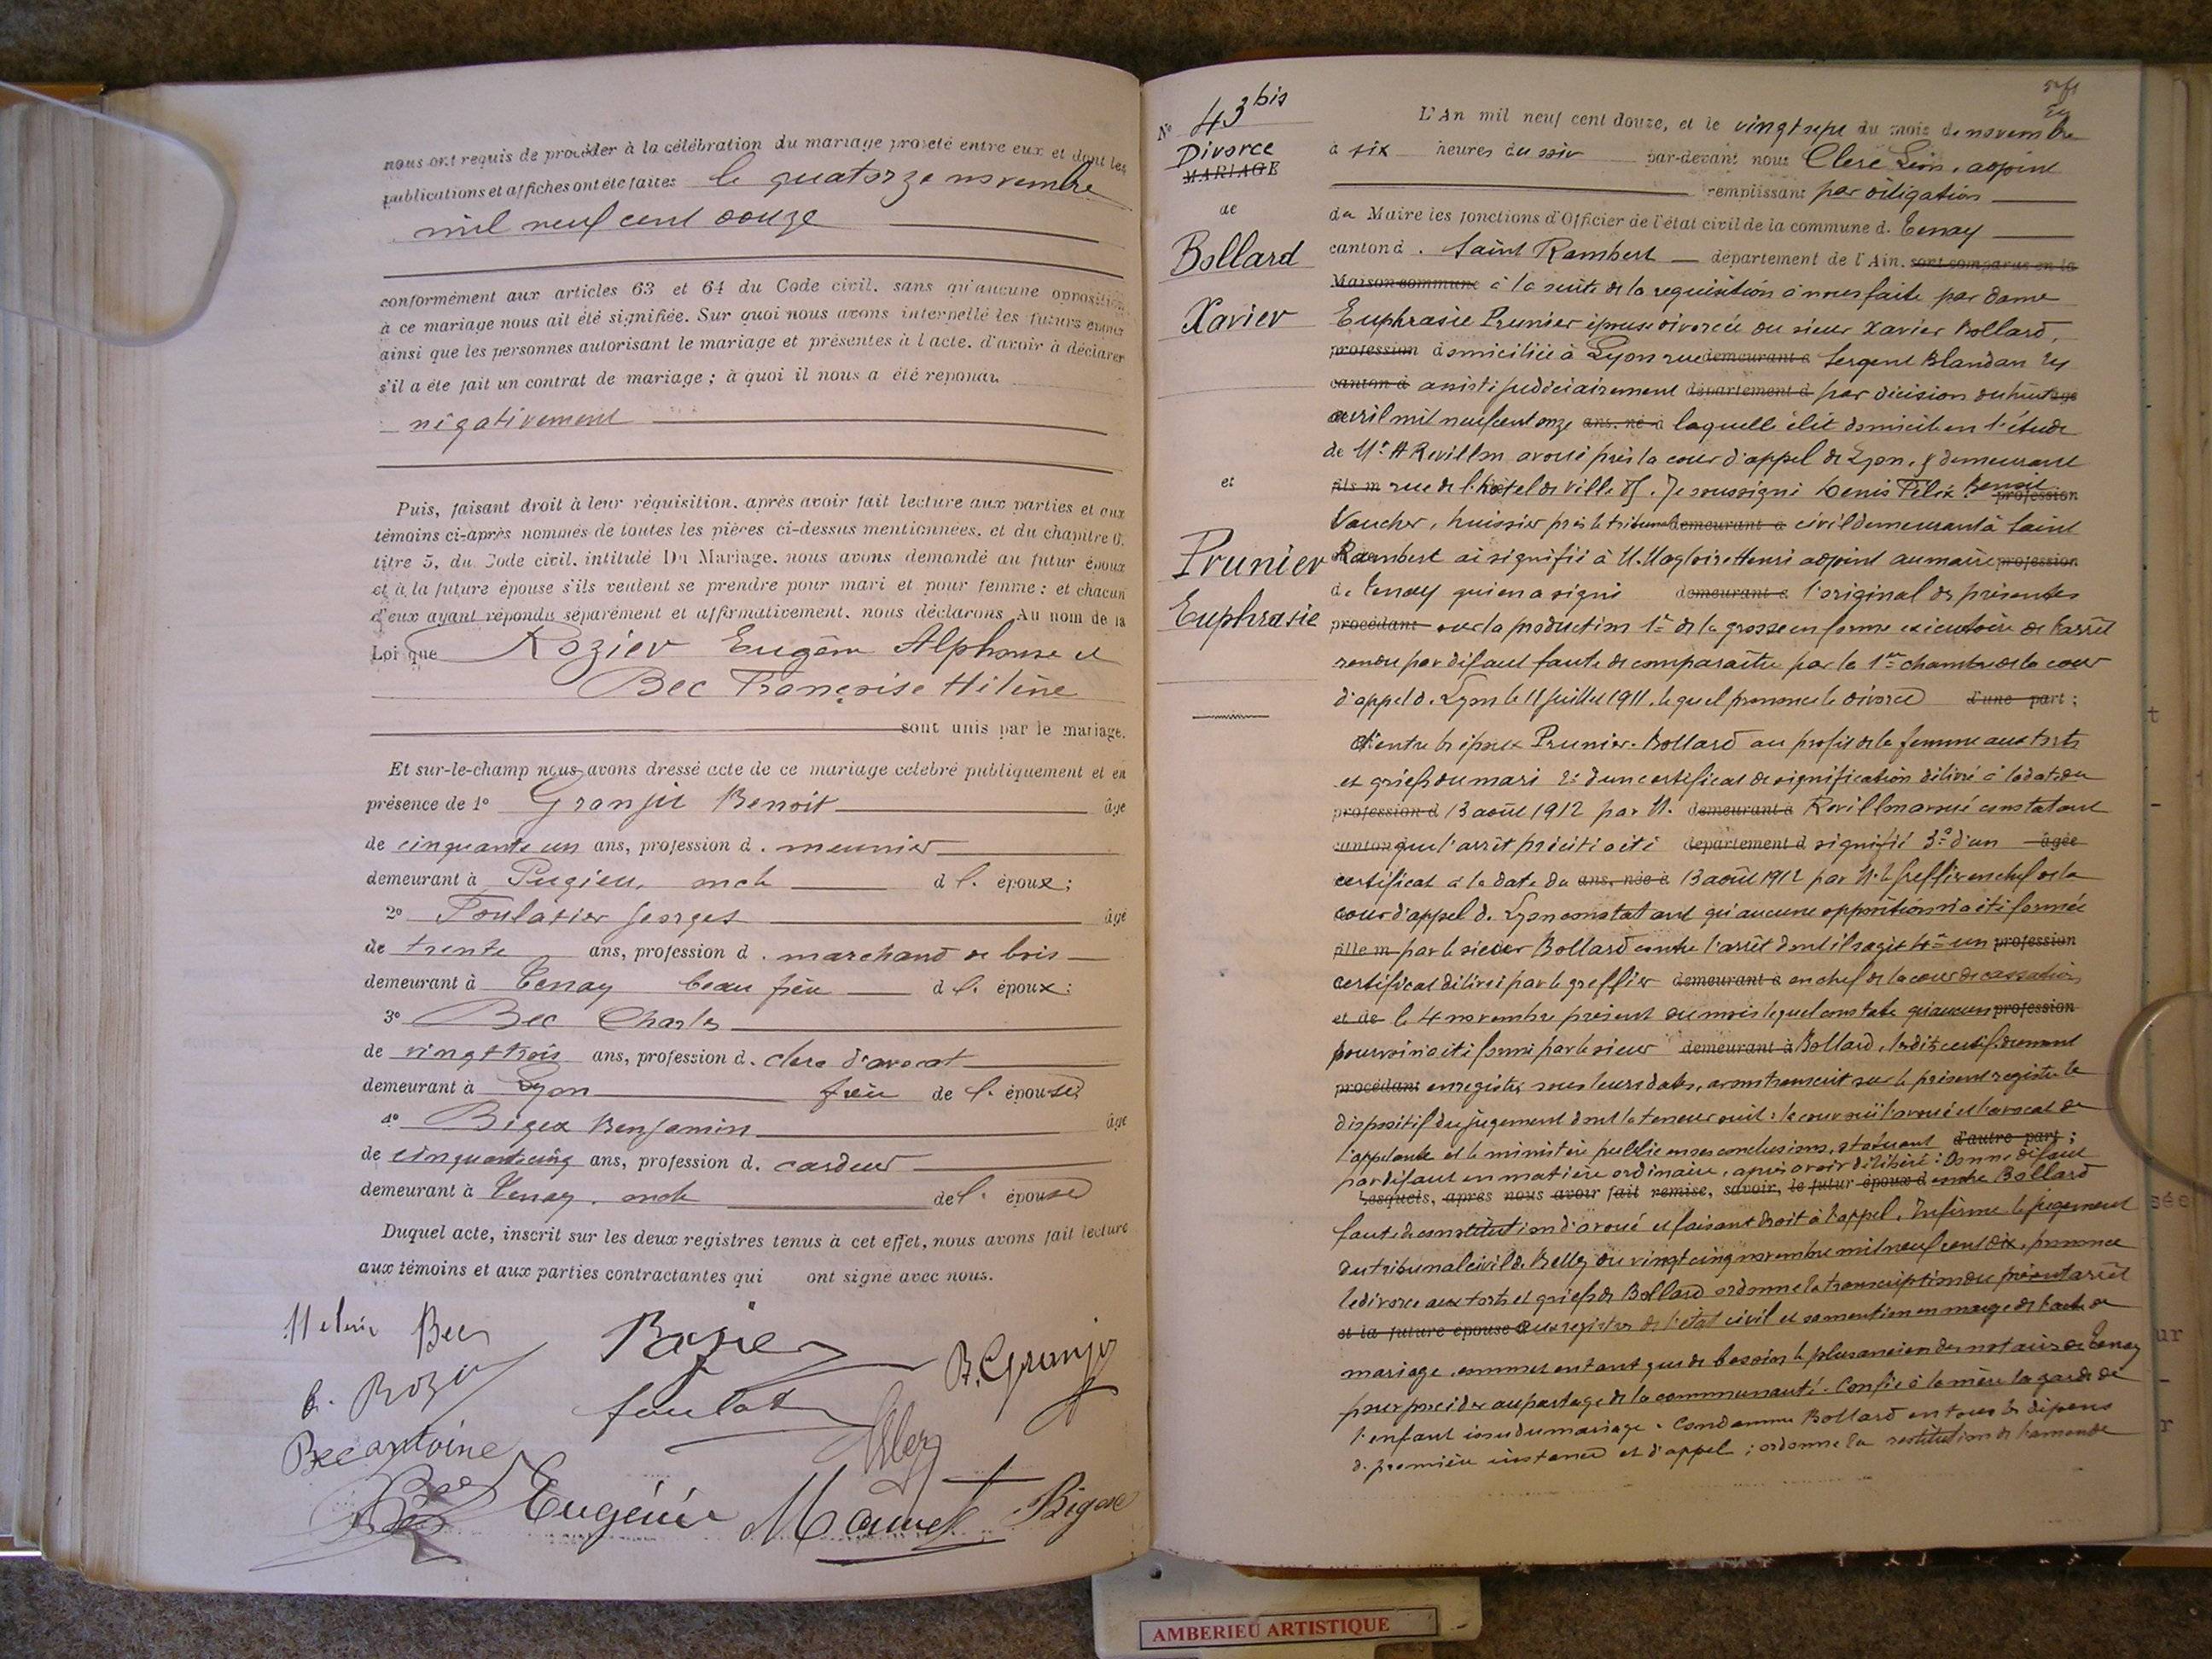 nous ont requis de procéder à la célébration du mariage projeté entre eux et dont les
publications et affiches ont été faites le quatorze novembre
mil neuf cent douze
conformément aux articles 63 et 64 du Code civil, sans qu'aucune opposition
à ce mariage nous ait été signifiée. Sur quoi nous avons interpellé les futurs époux
ainsi que les personnes autorisant le mariage et présentes à l'acte, d'avoir à déclarer
s'il a été fait un contrat de mariage ; à quoi il nous a été répondu
négativement
Puis, faisant droit à leur réquisition, après avoir fait lecture aux parties et aux
témoins ci-après nommés de toutes les pièces ci-dessus mentionnées, et du chapitre 6,
titre 5, du Code civil, intitulé Du Mariage, nous avons demandé au futur époux
et à la future épouse s'ils veulent se prendre pour mari et pour femme : et chacun
d'eux ayant répondu séparément et affirmativement, nous déclarons Au nom de la
Loi que Rozier Eugène Alphonse et
Bec Françoise Hélène
sont unis par le mariage.
Et sur-le-champ nous avons dressé acte de ce mariage célébré publiquement et en
présence de 1° Granjit Benoit âgé
de cinquante un ans, profession d. meunier
demeurant à Pugieu, oncle d l. époux ;
2° Foulatier Georges âgé
de trente ans, profession d. marchand de bois
demeurant à Tenay beau frère d l. époux ;
3° Bec Charles
de vingt trois ans, profession d. clerc d'avocat
demeurant à Lyon frère de l. épouse
4° Bigex Benjamin âgé
de cinquante cinq ans, profession d. cardeur
demeurant à Tenay. oncle de l. épouse
Duquel acte, inscrit sur les deux registres tenus à cet effet, nous avons fait lecture
aux témoins et aux parties contractantes qui ont signé avec nous.
Hélène Bec Rozier B. Granji
Bec antoine
Eugénie
N° 43 bis
Divorce
MARIAGE
de
Bollard
Xavier
et
Prunier
Euphrasie
L'An mil neuf cent douze, et le vingt sept du mois de novembre
à six heures du soir par-devant nous Clerc Léon, adjoint
remplissant par délégation
du Maire les fonctions d'Officier de l'état civil de la commune d. Tenay
canton d. Saint Rambert département de l'Ain, sont comparus en la
Maison commune à la suite de la requisition à nous faite par dame
Euphrasie Prunier épouse divorcée du sieur Xavier Bollard,
profession domiciliée à Lyon rue demeurant à Sergent Blandan
canton d assisté judiciairement département d par décision du huit âgé
avril mil neuf cent onze ans, né à laquelle élit domicile en l'étude
de Me H Revillon avoué près la cour d'appel de Lyon, y demeurant
fils m rue de l'hôtel de ville Je soussigné Denis Félix Benoit profession
Vaucher, huissier près le tribunal demeurant à civil demeurant à Saint
Rambert ai signifié à M. Magloire Henri adjoint au maire profession
de Tenay qui en a signé demeurant à l'original des présentes
procédant avec la production 1° de la grosse en forme exécutoire de l'arrêt
rendu par défaut faute de comparaître par la 1re chambre de la cour
d'appel d. Lyon le 11 juillet 1911, lequel prononce le divorce d'une part ;
d'entre les époux Prunier-Bollard au profit de la femme aux torts
et griefs du mari 2° d'un certificat de signification délivré à la date du
profession d 13 août 1912 par M. demeurant à Revillon avoué constatant
canton que l'arrêt précité a été département d signifié 3° d'un âgée
certificat à la date du ans, née à 13 août 1912 par M. le greffier en chef de la
cour d'appel d. Lyon constatant qu'aucune opposition n'a été formée
fille m par le sieur Bollard contre l'arrêt dont il s'agit 4° un profession
certificat délivré par le greffier demeurant à en chef de la cour de cassation
et de le 4 novembre présent du mois lequel constate qu'aucun profession
pourvoi n'a été formé par le sieur demeurant à Bollard, lesdits certif. dument
procédant enregistrés sous leurs dates, avons transcrit sur le présent registre le
dispositif du jugement dont la teneur suit : la cour ouï l'avoué et l'avocat de
l'appelante et le ministère public en ses conclusions, statuant d'autre part ;
par défaut en matière ordinaire, après avoir délibéré : Donne défaut
Lesquels, après nous avoir fait remise, savoir, le futur époux d contre Bollard
faute de constitution d'avoué et faisant droit à l'appel, Infirme le jugement
du tribunal civil de Belley du vingt cinq novembre mil neuf cent dix, prononce
le divorce aux torts et griefs de Bollard ordonne la transcription du présent arrêt
et la future épouse d aux registres de l'état civil et sa mention en marge de l'acte de
mariage, commet en tant que de besoin le plus ancien des notaires de Tenay
pour procéder au partage de la communauté. Confie à la mère la garde de
l'enfant issu du mariage. Condamne Bollard en tous les dépens
d. première instance et d'appel ; ordonne la restitution de l'amende
AMBERIEU ARTISTIQUE